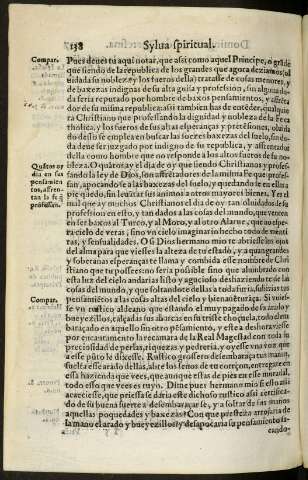 138 Sylua spiritual.
Compar. Pues deues tu aqui notar, que asi como aquel Principe, o grãde
que siendo de la republica de los grandes que agora deziamos (ol
uidada su nobleza y los fueros della) tratasse de cosas menores, y
de baxezas indignas de su alta guisa y profesion, sin alguna du
da seria reputado por hombre de baxos pensamientos, y afrẽta
dor de su misma republica: assi tambien has de entẽder, qualquie
ra Christiano que professando la dignidad y nobleza de la Fe ca
tholica, y los fueros de sus altas esperanças y pretẽsiones, oluida
do desto se emplea en buscar las sueras baxezas del suelo, sin du
da deue ser juzgado por indigno de su republica, y afrentador
della como hombre que no responde a los altos fueros de su no-
Quãtos oy bleza. O quãtos ay el dia de oy que siendo Christianos y profes-
dia en sus sando la ley de Dios, son afrẽtadores de la misma Fe que profes-
pensamien san, apocandose a las baxezas del suelo, y quedando se en ellas
tos, afren- pie quedo, sin leuãtar sus animos a otros mayores bienes. Yes el
tan la fe q̃ mal que ay muchos Christianos el dia de oy tan oluidados de
professan. su profession en esto, y tan dados a las cosas del mundo, que vernan
en ser baxos al Turco, y al Moro, y al otro Alarue, que no espe-
ra cielo de veras; sino vn cielo imaginario hecho todo de menti
ras, y sensualidades. O si Dios hermano mio te abriesse los ojos
del alma para que viesses la alteza de tu estado, y a quan grandes
y soberanas esperanças te llama y combida esse nombre de Chri
stiano que tu posses: no seria possible sino que alumbrado con
esta luz del cielo andarias listo y agucioso deshaziendo te de las
cosas del mundo, y que soltandote de toda esta tierra, subirias tus
pensamiẽtos a las cosas altas del cielo y bienauẽturãça. Si vuies-
Compar. se vn rustico aldeano que estando el muy pagado de su azulo y
bueyezillos, cõ sus abarcas en su triste choçuela, todo em
baraçado en aquello sin otro pẽsamiento, y este a deshora viesse
por encantamento la recamara de la Real Magestad con toda la
preciosidad de perlas, riquezas y pedreria, y oyesse vna voz que
a esse pũto le dixesse. Rustico grossero desembaraça tus manos,
suelta esse arado dellas, abre los senos de tu coraçon, entregate en
essa hazienda que vees, que aunque estas de pies en esse muradal,
todo esso que vees es tuyo. Dime pues hermano mio si esto assi
acaeciesse, que priessa se daria este dichoso rustico assi certifica-
do de su buena suerte a desembaraçarse, y a soltar de sus manos
aquellas poquedades y baxezas? Con que presteza arrojaria de
la mano el arado y bueyezillos? y desapocaria su pensamiento sa-
cando